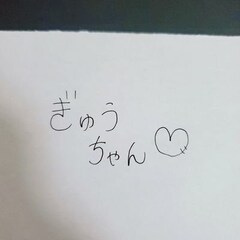 ぎゅう
ちゃん♡